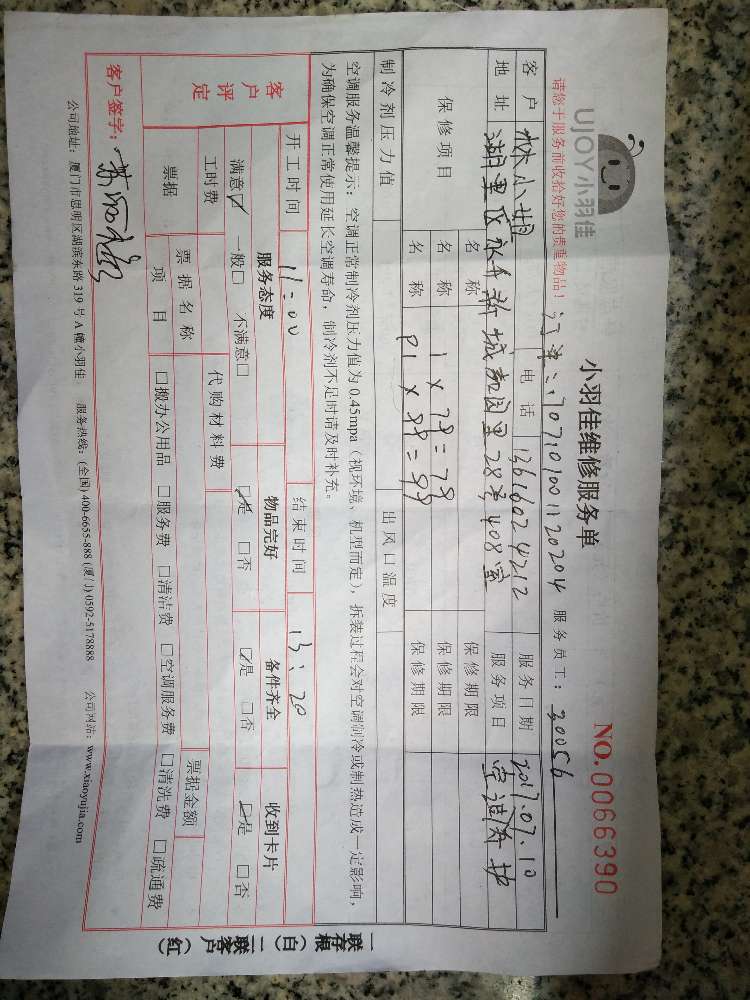 UJOY小羽佳
小羽佳维修服务单
NO.0066390
请您于服务前收拾好您的贵重物品！
服务员工：30056
客户 林小姐 电话 13616024212 服务日期 2017.07.10
地址 湖里区 28号408室 服务项目
保修项目 名称 保修期限
名称 1×78=78 保修期限
名称 保修期限
制冷剂压力值 出风口温度
空调服务温馨提示：空调正常制冷剂压力值为0.45mpa（视环境、机型而定），拆装过程会对空调制冷或制热造成一定影响，
为确保空调正常使用延长空调寿命，制冷剂不足时请及时补充。
开工时间 11:00 结束时间 13:20
客户评定 服务态度 物品完好 备件齐全 收到卡片
满意☑ 一般□ 不满意□ ☑是 □否 ☑是 □否 ☑是 □否
工时费 代购材料费
票据 票据名称 票据金额
项目 □搬办公用品 □服务费 □清洁费 □空调服务费 □清洗费 □疏通费
客户签字：
公司地址：厦门市思明区湖滨东路319号A幢小羽佳 服务热线：(全国)400-6655-888 (厦门)0592-5178888 公司网站：www.xiaoyujia.com
一联存根（白）二联客户（红）